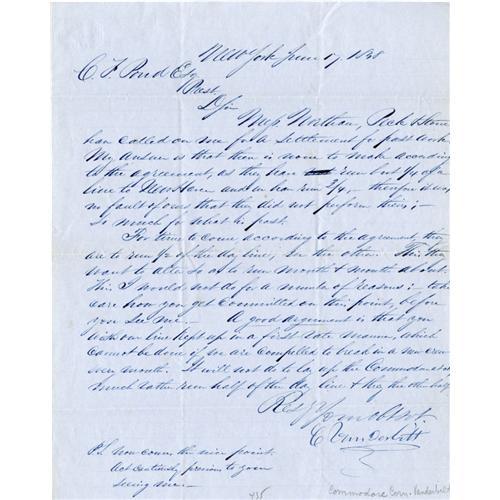 New York June 17, 1838
C. F. Pond Esq
Prest.
D Sir
Mess Northam, Peck & Stone
have called on me for a settlement for past work
My answer is that there is none to make according
to the agreement, as they have run but 1/4 of a
line to New Haven and we have run 3/4, therefore it was
no fault of ours that they did not perform theirs;—
So much for what is past.
For time to come according to the agreement they
are to run 1/2 of the day line, we the other. This they
want to alter so as to run month & month about.
This I would not do for a number of reasons:— take
care how you get Committed on this point, before
you see me. A good argument is that you
wish our line kept up in a first rate manner, which
cannot be done if we are compelled to break in a new crew
every month. It will not do to lay up the Commodore
much rather run half of the day line & they the other half
Resy Yr mo Obst.
C Vanderbilt
P.S. now comes the nice point.
Act cautiously previous to your
seeing me—
435
Commodore Corn. Vanderbilt